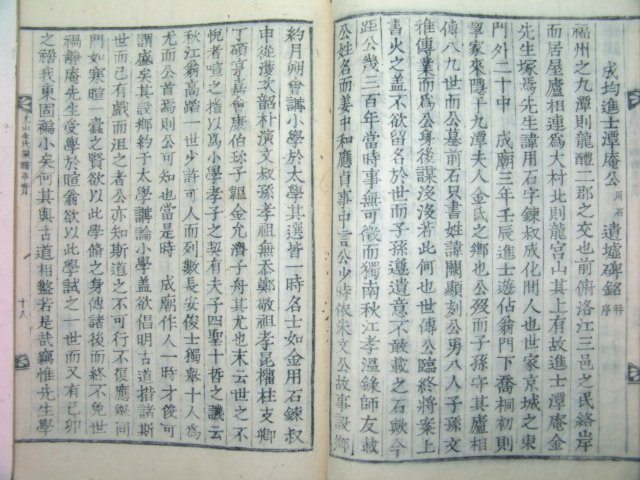 成均進士潭庵公用石遺墟碑銘幷序
福州之九潭則龍醴二郡之交也前俯洛江三邑之民絡岸
而居屋廬相連爲大村北則龍宮山其上有故進士潭庵金
先生塚焉先生諱用石字鍊叔成化間人也世家京城之東
門外二十中 成廟三年壬辰進士遊佔畢門下喬桐初則
挈家來隱于九潭夫人金氏之鄕也公歿而子孫守其廬相
傳八九世而公墓前石只書姓諱闕顯刻公男八人子孫文
雅傳業而爲公身後謀沒沒若此何也世傳公臨終將案上
書火之盖不欲留名於世而子孫遵遺意不敢載之石歟今
距公幾三百年當時事無可徵而獨南秋江孝溫錄師友載
公姓名而姜中和應貞事中言公少時依朱文公故事設鄕
約月朔會講小學於太學其選皆一時名士如金用石鍊叔
申從濩次韶朴演文叔孫孝祖無忝鄭敬祖孝昆權柱支卿
丁碩亨嘉會康伯珎子韞金允濟子舟其尤也末云世之不
悅者喧之指以爲小學契孝子之契有夫子四聖十哲之譏云
秋江翁高蹈一世少許可人而列數長安俊士獨擧十人爲
尤而公首焉則公可知也當是時 成廟作人一時才俊可
謂盛矣其設鄕約于太學講論小學盖欲倡明古道措諸斯
世而已有戲而沮之者公亦知斯道之不可行不復應擧同
門如寒暄一蠹之賢欲以此學脩之身傳諸後而終不免世
禍靜庵先生受學於暄翁欲以此學試之一世而又有己卯
之禍我東固褊小矣何其與古道相盭若是哉竊惟先生學
十八